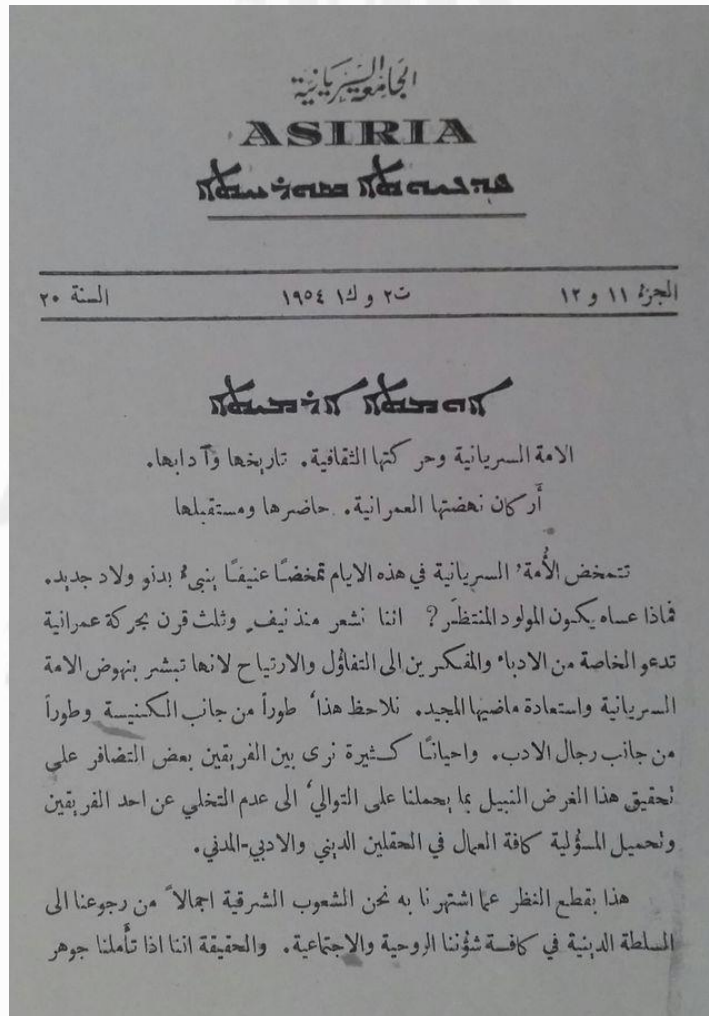 الجامعة السريانية
ASIRIA
ܣܘܪܝܝܬܐ
الجزء ١١ و ١٢ ت٢ و ك١ ١٩٥٤ السنة ٢٠
ܐܘܡܬܐ ܐܪܡܝܬܐ
الامة السريانية وحركتها الثقافية. تاريخها وآدابها.
أركان نهضتها العمرانية. حاضرها ومستقبلها
تتمخض الأُمة السريانية في هذه الايام تمخضًا عنيفًا ينبىء بدنو ولاد جديد.
فماذا عساه يكون المولود المنتظَر؟ اننا نشعر منذ نيف وثلث قرن بحركة عمرانية
تدعو الخاصة من الادباء والمفكرين الى التفاؤل والارتياح لانها تبشر بنهوض الامة
السريانية واستعادة ماضيها المجيد. نلاحظ هذا طوراً من جانب الكنيسة وطوراً
من جانب رجال الادب. واحيانًا كثيرة نرى بين الفريقين بعض التضافر على
تحقيق هذا الغرض النبيل بما يحملنا على التوالي الى عدم التخلي عن احد الفريقين
وتحميل المسؤلية كافة العمال في الحقلين الديني والادبي-المدني.
هذا بقطع النظر عما اشتهرنا به نحن الشعوب الشرقية اجمالاً من رجوعنا الى
السلطة الدينية في كافة شؤننا الروحية والاجتماعية. والحقيقة اننا اذا تأملنا جوهر